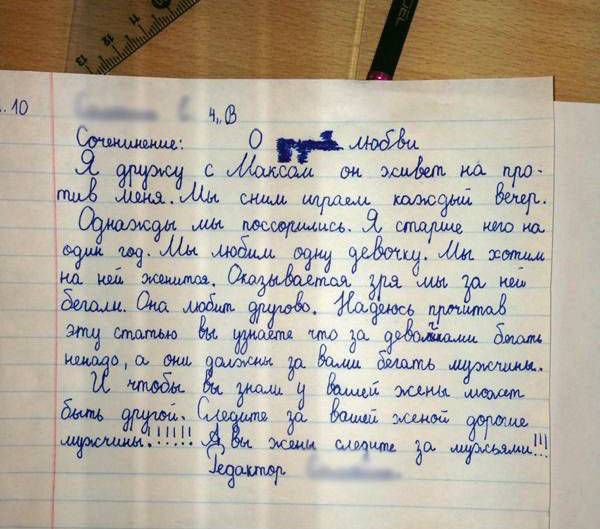 . 10
4 „В
Сочинение: О любви
Я дружу с Максом он живет на про-
тив меня. Мы сним играем каждый вечер.
Однажды мы поссорились. Я старше него на
один год. Мы любим одну девочку. Мы хотим
на ней женится. Оказывается зря мы за ней
бегали. Она любит другово. Надеюсь прочитав
эту статью вы узнаете что за девочками бегать
ненадо, а они должны за вами бегать мужчины.
И чтобы вы знали у вашей жены может
быть другой. Следите за вашей женой дорогие
мужчины!!!!!! А вы жены следите за мужьями!!!
Редактор